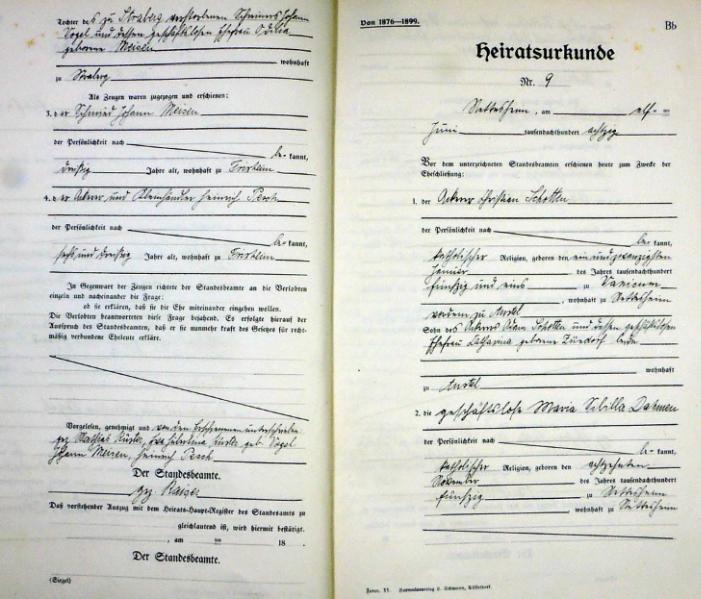 Tochter des zu Straberg verstorbenen Schreiners Johann
Vogel und dessen geschäftslosen Ehefrau Odilia
geborene Meisen
wohnhaft
zu Straberg
Als Zeugen waren zugezogen und erschienen:
3. der Schmied Johann Meisen
der Persönlichkeit nach
be- kannt,
dreißig Jahre alt, wohnhaft zu
4. der Ackerer und Kleinhändler Heinrich Pesch
der Persönlichkeit nach
be- kannt,
sechs und dreißig Jahre alt, wohnhaft zu
In Gegenwart der Zeugen richtete der Standesbeamte an die Verlobten
einzeln und nacheinander die Frage:
ob sie erklären, daß sie die Ehe miteinander eingehen wollen.
Die Verlobten beantworteten diese Frage bejahend. Es erfolgte hierauf der
Ausspruch des Standesbeamten, daß er sie nunmehr kraft des Gesetzes für recht-
mäßig verbundene Eheleute erkläre.
Vorgelesen, genehmigt und von den Erschienenen unterschrieben
gez. Mathias geb. Vogel
Johann Meisen, Heinrich Pesch
Der Standesbeamte.
gez.
Daß vorstehender Auszug mit dem Heirats-Haupt-Register des Standesamts zu
gleichlautend ist, wird hiermit bestätigt.
, am 18 .
Der Standesbeamte.
(Siegel)
Von 1876—1899.
Bb
Heiratsurkunde
Nr. 9
Nettesheim, am elf-
Juni tausendachthundert achtzig
Vor dem unterzeichneten Standesbeamten erschienen heute zum Zwecke der
Eheschließung:
1. der Ackerer Christian Schotten
der Persönlichkeit nach
be- kannt,
katholischer Religion, geboren den ein und zwanzigsten
Januar des Jahres tausendachthundert
fünfzig und eins zu
, wohnhaft zu Nettesheim
vordem zu Anstel
Sohn des Ackerers Adam Schotten und dessen geschäftslosen
Ehefrau Catharina geborene Zündorf beide
wohnhaft
zu Anstel
2. die geschäftslose Maria Sibilla Dahmen
der Persönlichkeit nach
be- kannt,
katholischer Religion, geboren den achtzehnten
November des Jahres tausendachthundert
fünfzig zu Nettesheim
wohnhaft zu Nettesheim